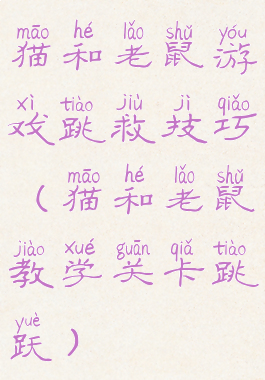 māo hé lǎo shǔ yóu
猫和老鼠游
xì tiào jiù jì qiǎo
戏跳救技巧
māo hé lǎo shǔ
（猫和老鼠
jiào xué guān qiǎ tiào
教学关卡跳
yuè
跃）